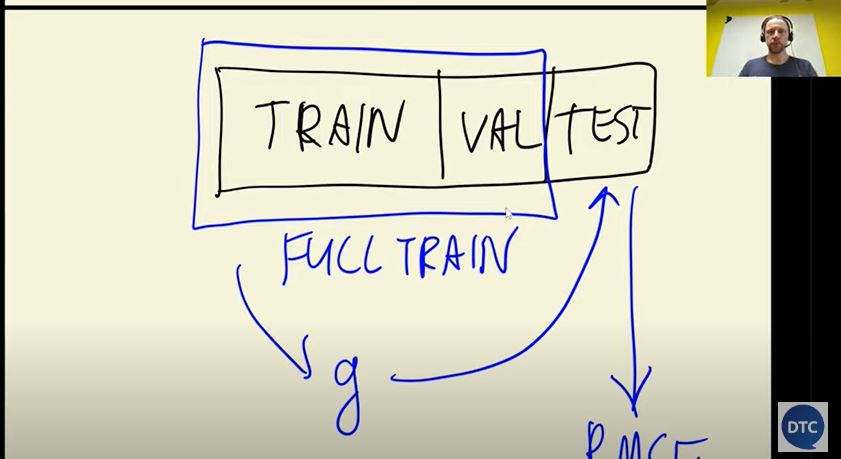 TRAIN VAL TEST
FULL TRAIN
g
RMSE
DTC